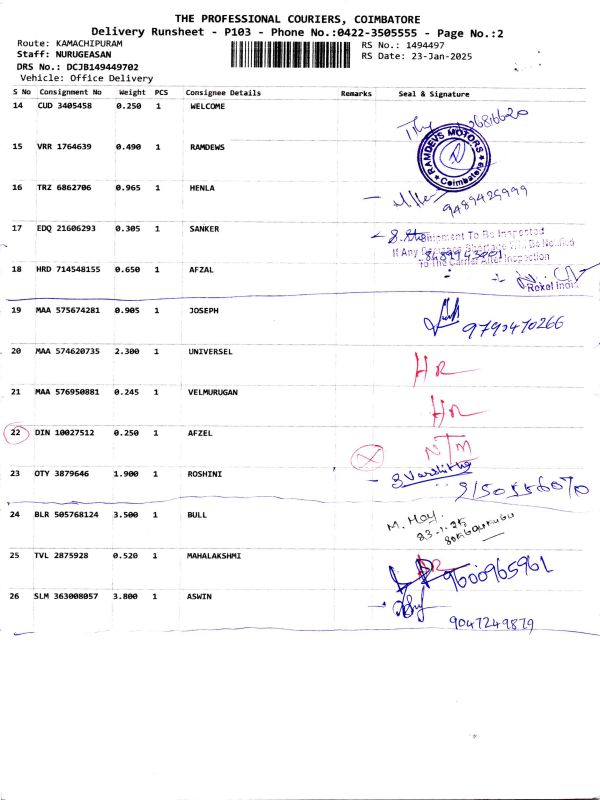 THE PROFESSIONAL COURIERS, COIMBATORE
Delivery Runsheet - P103 - Phone No.:0422-3505555 - Page No.:2
Route: KAMACHIPURAM RS No.: 1494497
Staff: NURUGEASAN RS Date: 23-Jan-2025
DRS No.: DCJB149449702
Vehicle: Office Delivery
S No Consignment No Weight PCS Consignee Details Remarks Seal & Signature
14 CUD 3405458 0.250 1 WELCOME
15 VRR 1764639 0.490 1 RAMDEWS
RAMDEVS MOTORS
Coimbatore
16 TRZ 6862706 0.965 1 HENLA
9489425999
17 EDQ 21606293 0.305 1 SANKER
Shipment To Be Inspected
If Any Damage Shortage Will Be Notified
To The Carrier After Inspection
18 HRD 714548155 0.650 1 AFZAL
Rexel India
19 MAA 575674281 0.905 1 JOSEPH
9790470266
20 MAA 574620735 2.300 1 UNIVERSEL HR
21 MAA 576950881 0.245 1 VELMURUGAN HR
22 DIN 10027512 0.250 1 AFZEL NTM
23 OTY 3879646 1.900 1 ROSHINI
9150556070
24 BLR 505768124 3.500 1 BULL
23-1-25
25 TVL 2875928 0.520 1 MAHALAKSHMI 9600965961
26 SLM 363008057 3.800 1 ASWIN
9047249879